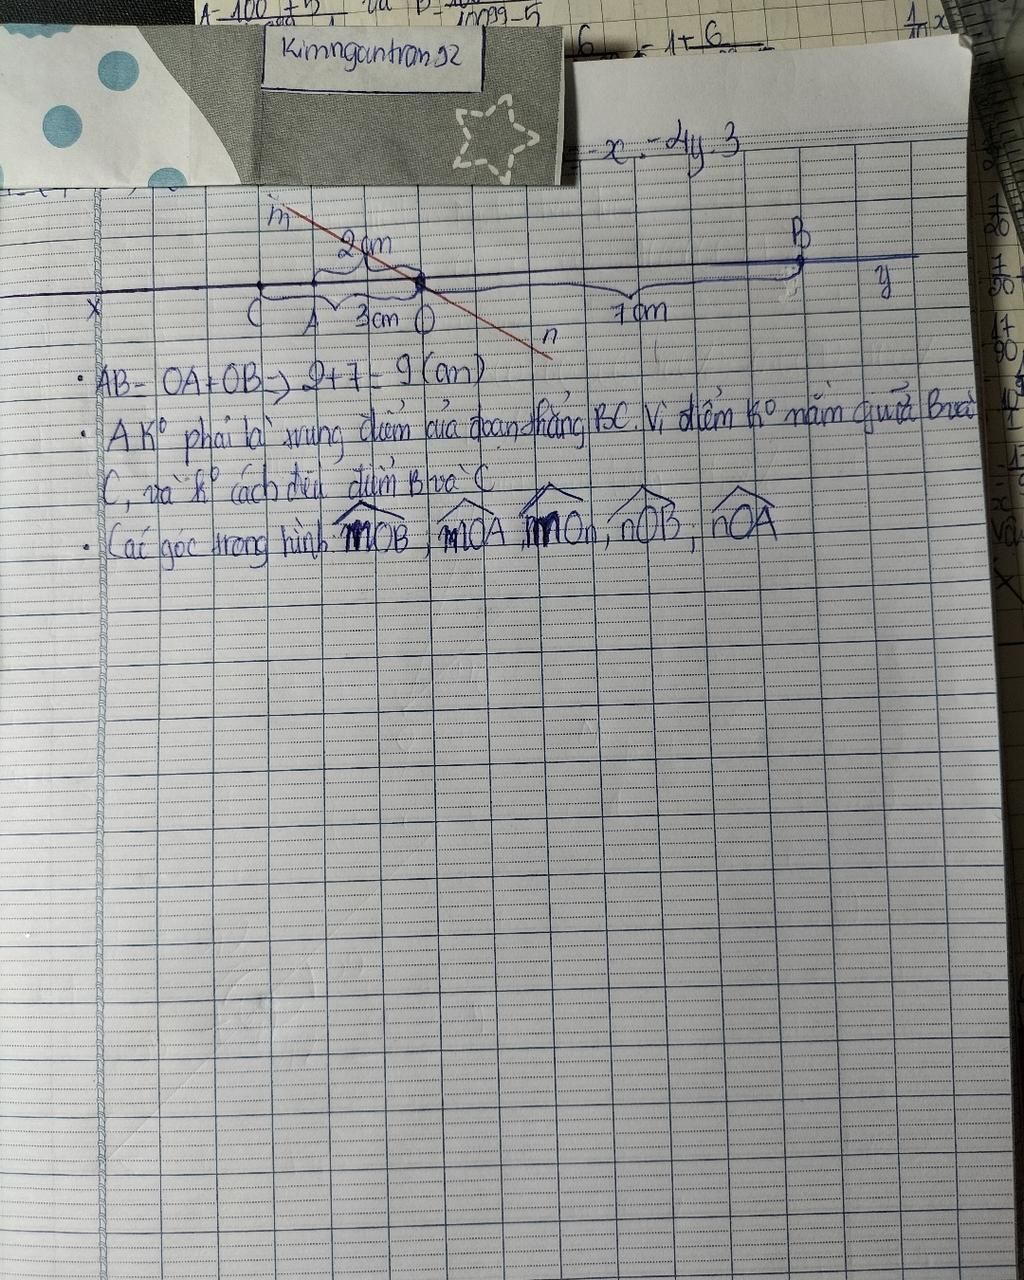 A = 100 + 5 và B =
10099-5
6 = 1+ 6
1/10 x
Kimngantran92
-x.-4y.3
m
2cm
B
x C A 3cm O 7cm y
n
. AB= OA+OB=> 2+7= 9 (cm)
. A k° phải là trung điểm của đoạn thẳng BC. Vì điểm k° nằm giữa B và
C, và k° cách đều điểm B và C
. Các góc trong hình mOB, mOA, mOn, nOB, nOA